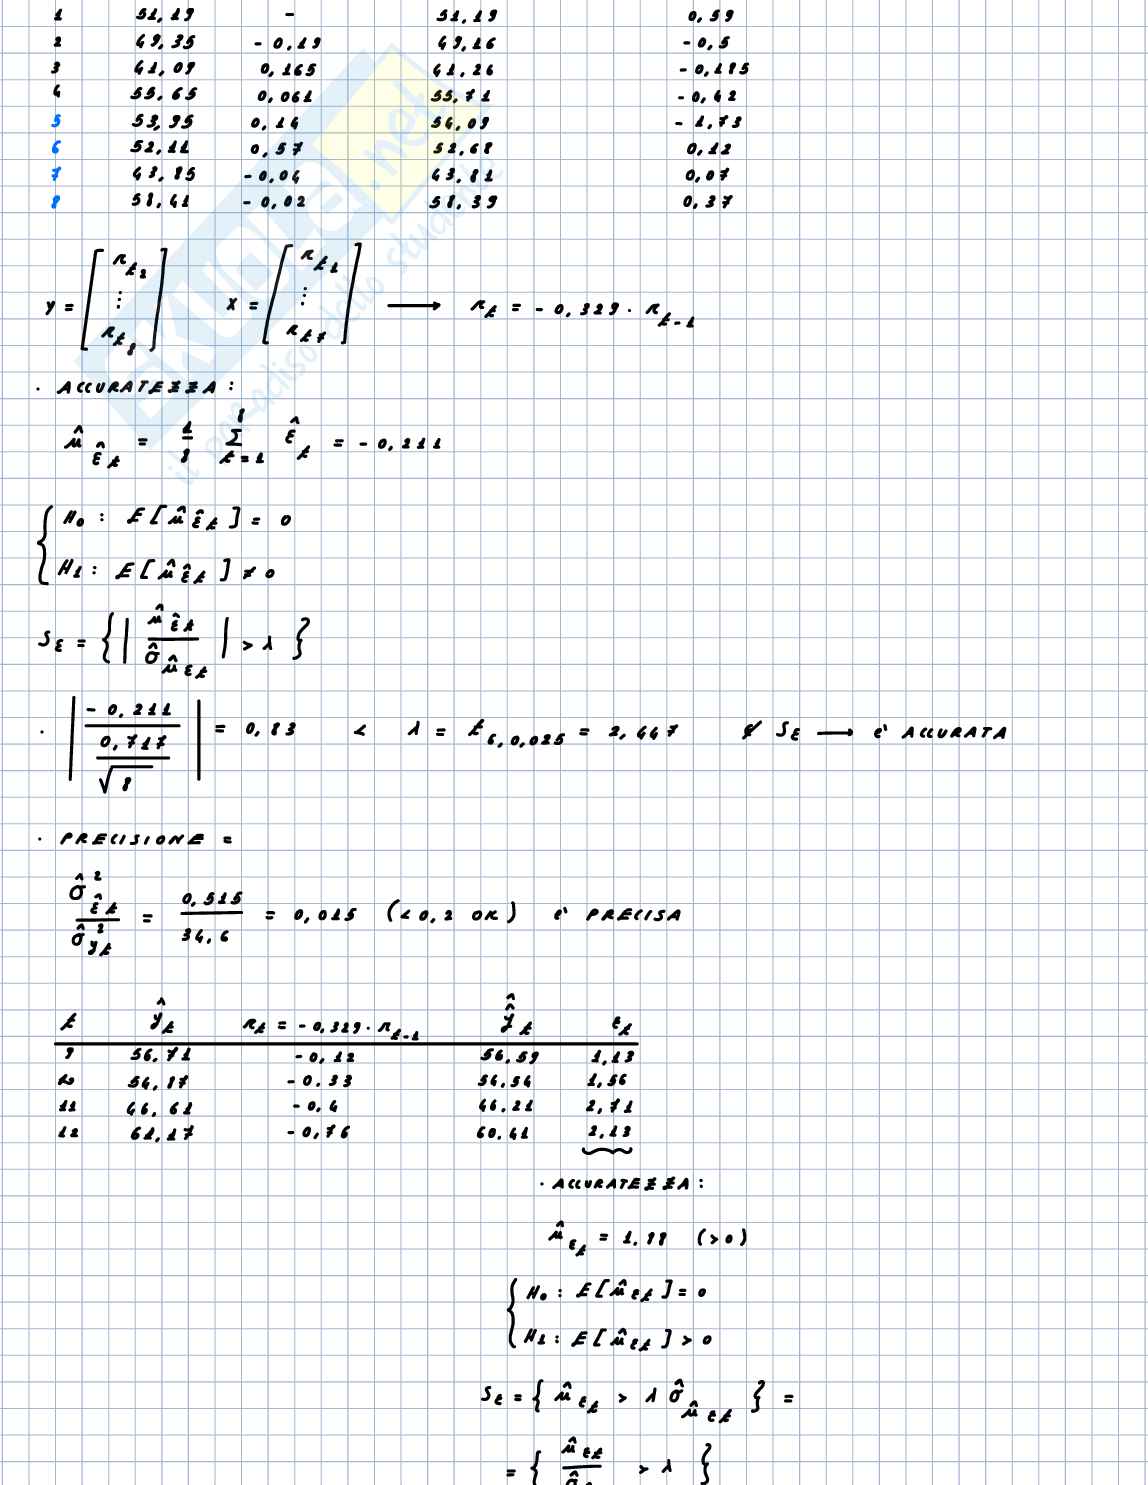 1 51,19 - 51,19 0,59
2 49,35 -0,19 49,16 -0,5
3 41,09 0,165 41,26 -0,185
4 55,65 0,061 55,71 -0,42
5 53,95 0,14 54,09 -1,73
6 52,11 0,57 52,68 0,12
7 43,85 -0,04 43,81 0,07
8 58,41 -0,02 58,39 0,37
y = [r_t2 ⋮ r_t8] X = [r_t1 ⋮ r_t7] → r_t = -0,329 · r_t-1
· ACCURATEZZA :
μ̂_ε̂t = 1/8 Σ_{t=1}^{8} ε̂_t = -0,211
H0 : E[μ̂_ε̂t] = 0
H1 : E[μ̂_ε̂t] ≠ 0
S_ε = { | μ̂_ε̂t / σ̂_μ̂εt | > λ }
· | -0,211 / (0,717 / √8) | = 0,83 < λ = t_6,0,025 = 2,447 ∉ S_ε → è ACCURATA
· PRECISIONE =
σ̂²_ε̂t / σ̂²_yt = 0,515 / 34,6 = 0,015 (<0,2 OK) è PRECISA
t ŷ_t r_t = -0,329 · r_t-1 ŷ̂_t ε_t
9 56,71 -0,12 56,59 1,13
10 54,87 -0.33 54,54 1,56
11 46,61 -0,4 46,21 2,71
12 61,17 -0,76 60,41 2,13
· ACCURATEZZA :
μ̂_εt = 1,88 (>0)
H0 : E[μ̂_εt] = 0
H1 : E[μ̂_εt] > 0
S_ε = { μ̂_εt > λ σ̂_μ̂εt } =
= { μ̂_εt / σ̂ > λ }
SKUOLA.net
il paradiso dello studente